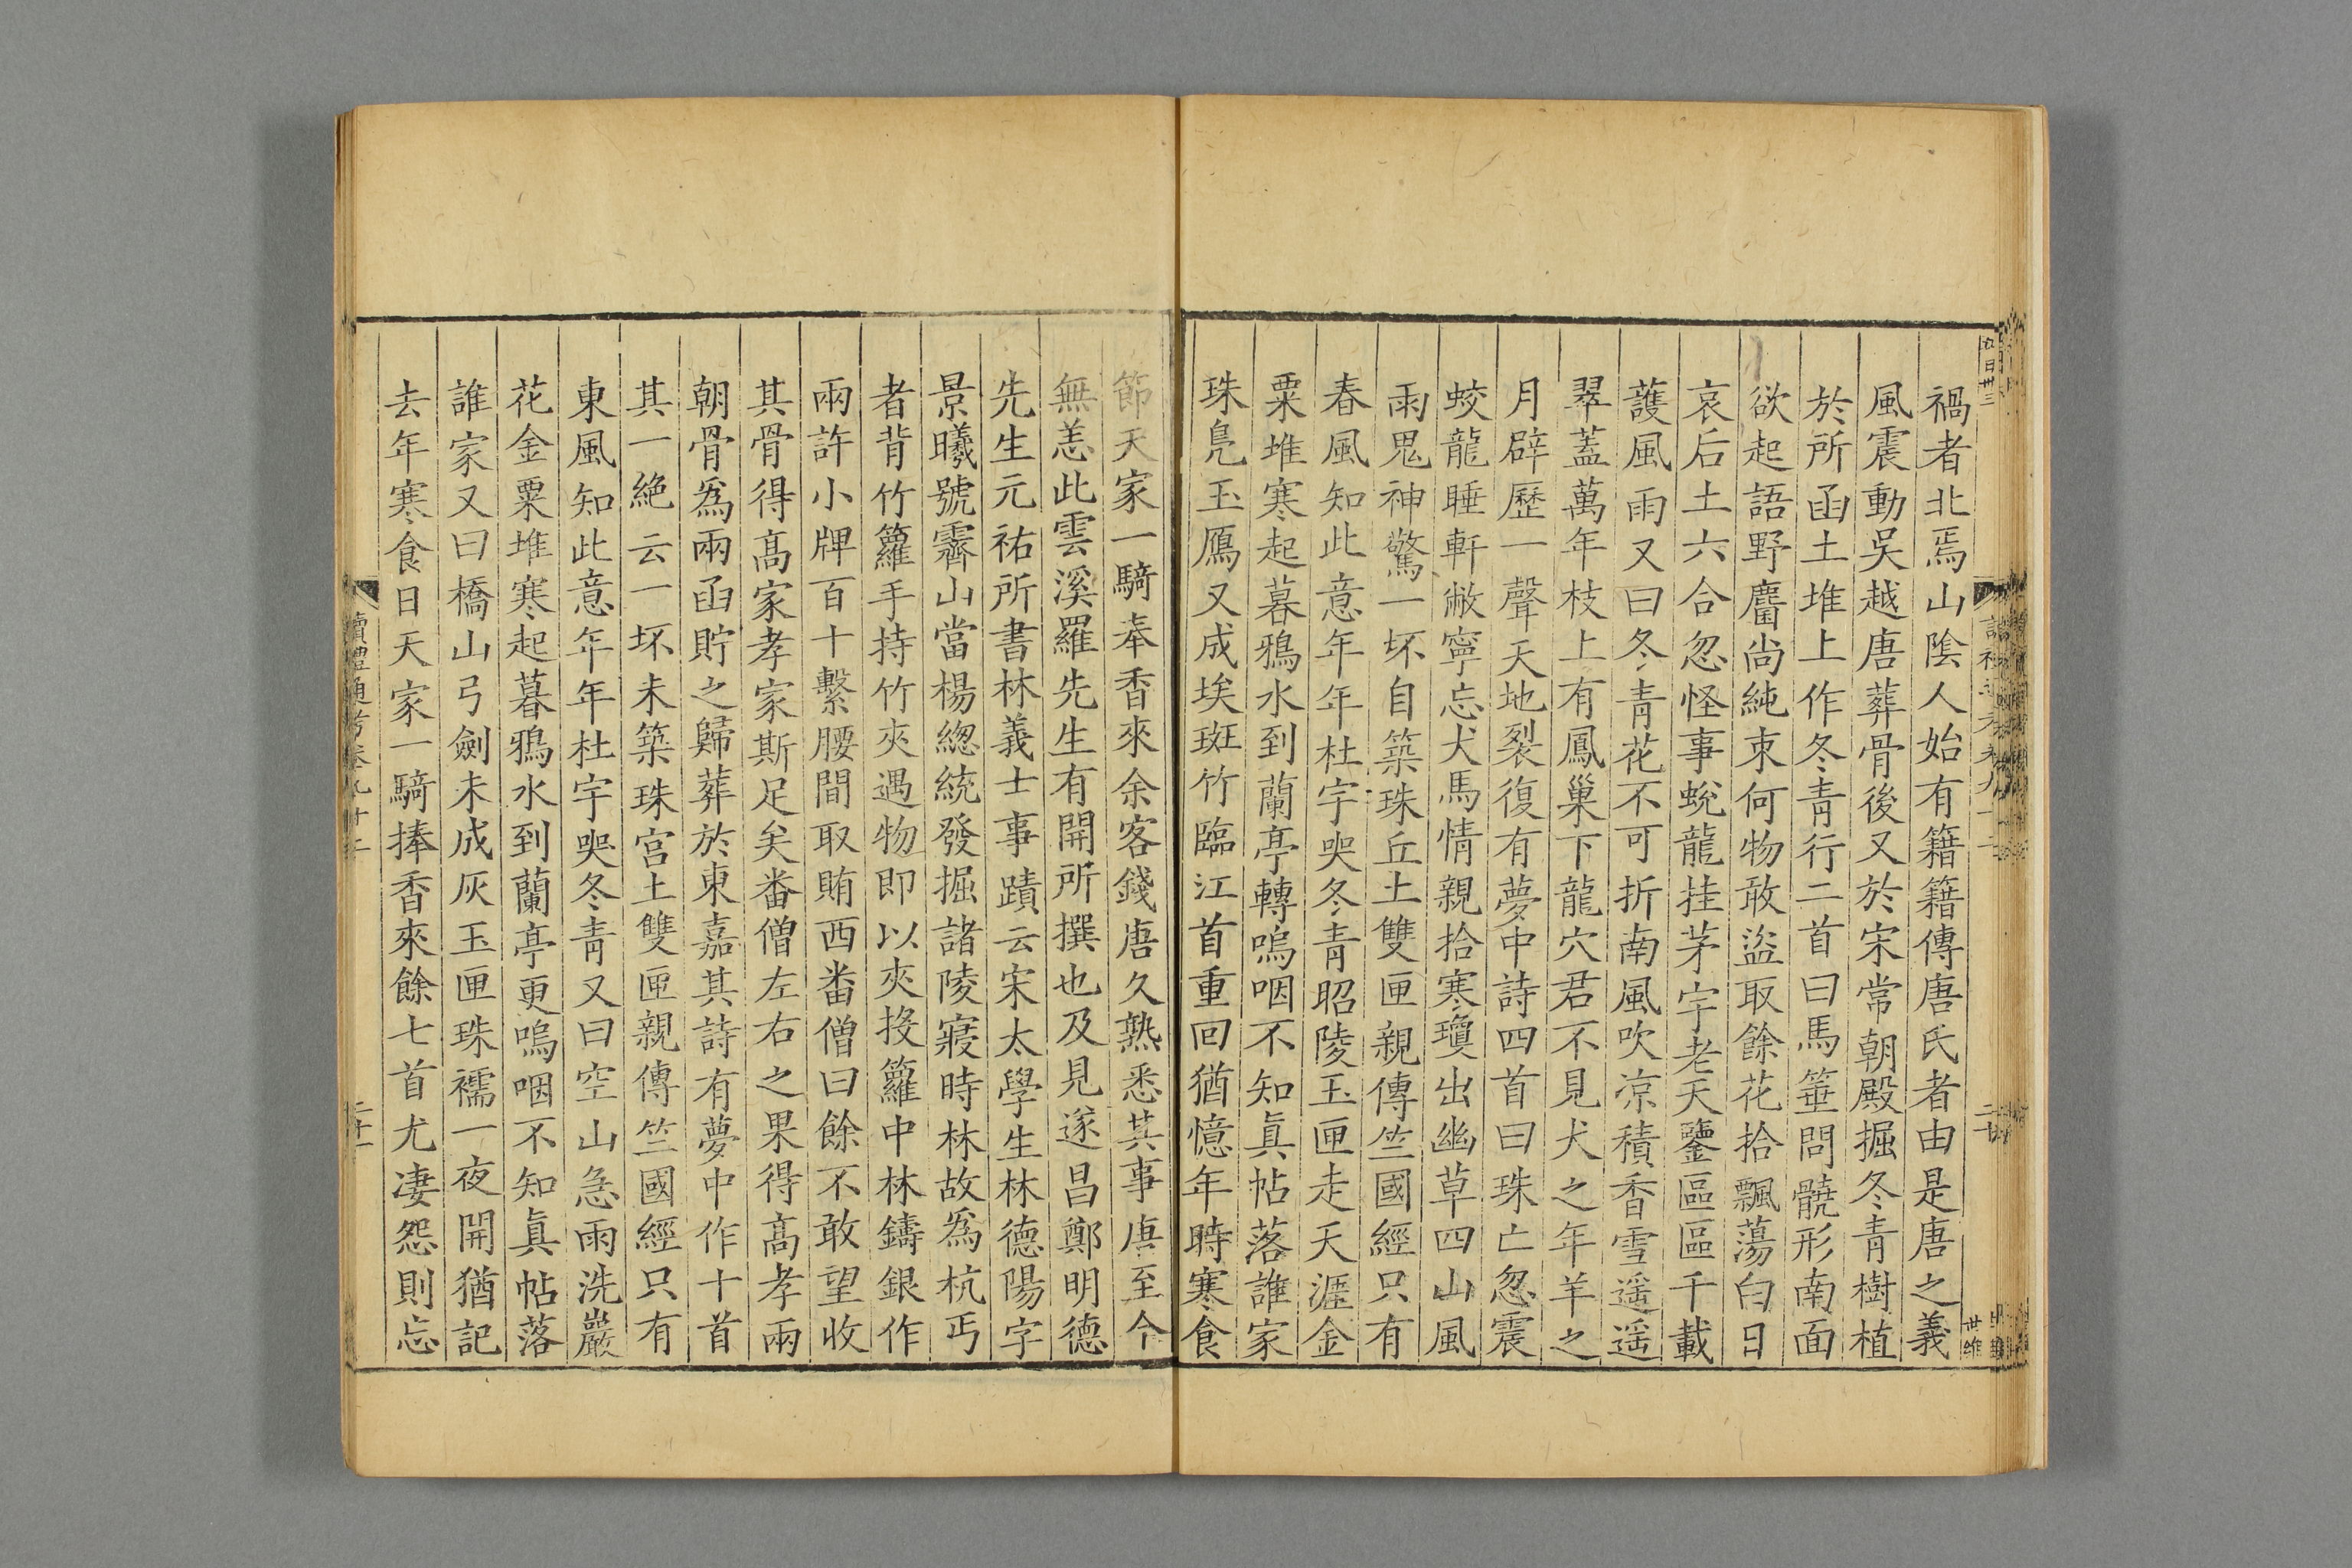 禍者北焉山陰人始有籍籍傳唐氏者由是唐之義
風震動吳越唐葬骨後又於宋常朝殿掘冬青樹植
於所函土堆上作冬青行二首曰馬箠問髐形南面
欲起語野麕尚純束何物敢盜取餘花拾飄蕩白日
哀后土六合忽怪事蛻龍挂茅宇老天鑒區區千載
護風雨又曰冬青花不可折南風吹凉積香雪遥遥
翠蓋萬年枝上有鳳巢下龍穴君不見犬之年羊之
月辟歷一聲天地裂復有夢中詩四首曰珠亡忽震
蛟龍睡軒敝寧忘犬馬情親拾寒瓊出幽草四山風
雨鬼神驚一坏自築珠丘土雙匣親傳竺國經只有
春風知此意年年杜宇哭冬青昭陵玉匣走天涯金
粟堆寒起暮鴉水到蘭亭轉嗚咽不知真帖落誰家
珠鳧玉鴈又成埃斑竹臨江首重回猶憶年時寒食
節天家一騎奉香來余客錢唐久熟悉其事唐至今
無恙此雲溪羅先生有開所撰也及見遂昌鄭明德
先生元祐所書林義士事蹟云宋太學生林德陽字
景曦號霽山當楊總統發掘諸陵寢時林故爲杭丐
者背竹籮手持竹夾遇物即以夾投籮中林鑄銀作
兩許小牌百十繫腰間取賄西番僧曰餘不敢望收
其骨得髙家孝家斯足矣番僧左右之果得髙孝兩
朝骨爲兩函貯之歸葬於東嘉其詩有夢中作十首
其一絶云一坏未築珠宫土雙匣親傳竺國經只有
東風知此意年年杜宇哭冬青又曰空山急雨洗巖
花金粟堆寒起暮鴉水到蘭亭更嗚咽不知真帖落
誰家又曰橋山弓劍未成灰玉匣珠襦一夜開猶記
去年寒食日天家一騎捧香來餘七首尤凄怨則忘
讀禮通考卷九十二
二十一